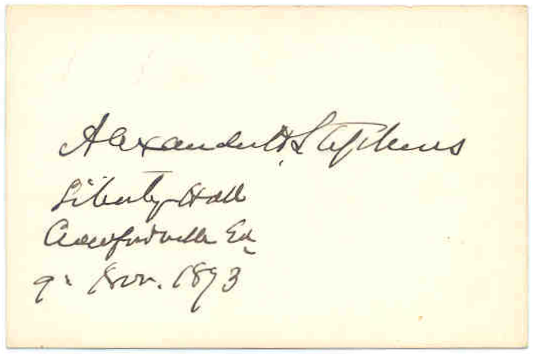 Alexander H. Stephens
Liberty Hall
Crawfordville Ga
9. Nov. 1873